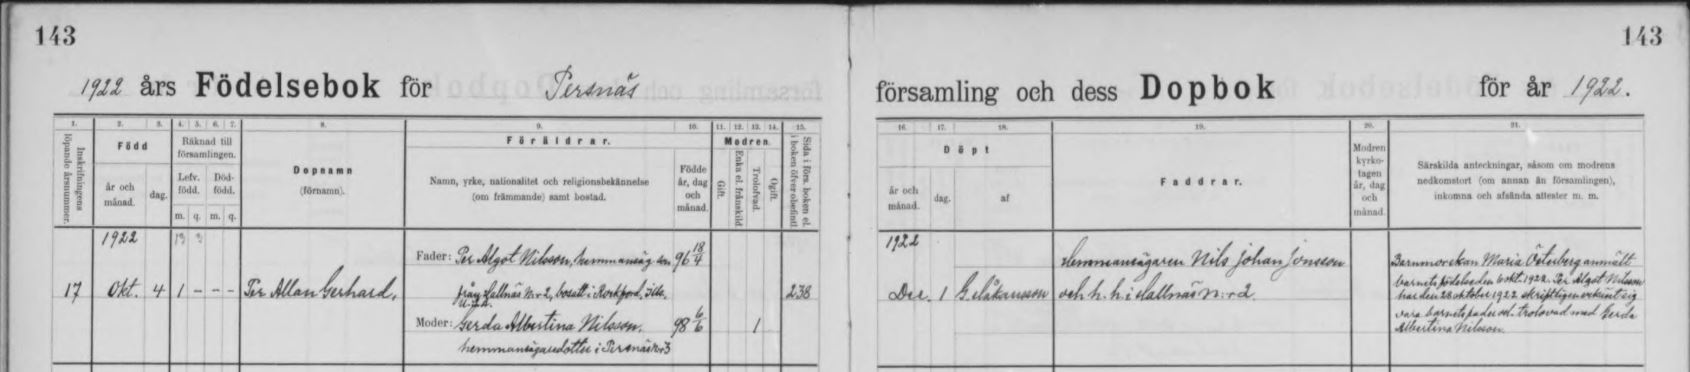 143
143
1922 års Födelsebok för Persnäs
församling och dess Dopbok för år 1922.
1. 2. 3. 4. 5. 6. 7. 8. 9. 10. 11. 12. 13. 14. 15.
16. 17. 18. 19. 20. 21.
Inskrifningens
löpande årsnummer.
Född
år och
månad.
dag.
Räknad till
församlingen.
Lefv.
född.
Död-
född.
m. q. m. q.
Dopnamn
(förnamn).
Föräldrar.
Namn, yrke, nationalitet och religionsbekännelse
(om främmande) samt bostad.
Födde
år, dag
och
månad.
Modren.
Gift.
Enka el. frånskild
Trolofvad.
Ogift.
Sida i förs. boken el.
i boken öfver obefintl.
Döpt
år och
månad.
dag.
af
Faddrar.
Modren
kyrko-
tagen
år, dag
och
månad.
Särskilda anteckningar, såsom om modrens
nedkomstort (om annan än församlingen),
inkomna och afsända attester m. m.
1922
Fader: Per Algot Nilsson, hemmansäg. son 96 18/4
17 Okt. 4 1 - - - Per Allan Gerhard, från Hallnäs N:r 2, bosatt i Rockford, Ills. 238
U.S.A.
Moder: Gerda Albertina Nilsson, 98 6/6 1
hemmansägaredotter i Persnäs N:r 3
1922
Hemmansägaren Nils Johan Jonsson
Dec. 1 G. Håkansson och h. h. i Hallnäs N:r 2.
Barnmorskan Maria Österberg anmält
barnets födelse den 6 okt. 1922. Per Algot Nilsson
har den 28 oktober 1922 skriftligen erkänt sig
vara barnets fader och trolovad med Gerda
Albertina Nilsson.